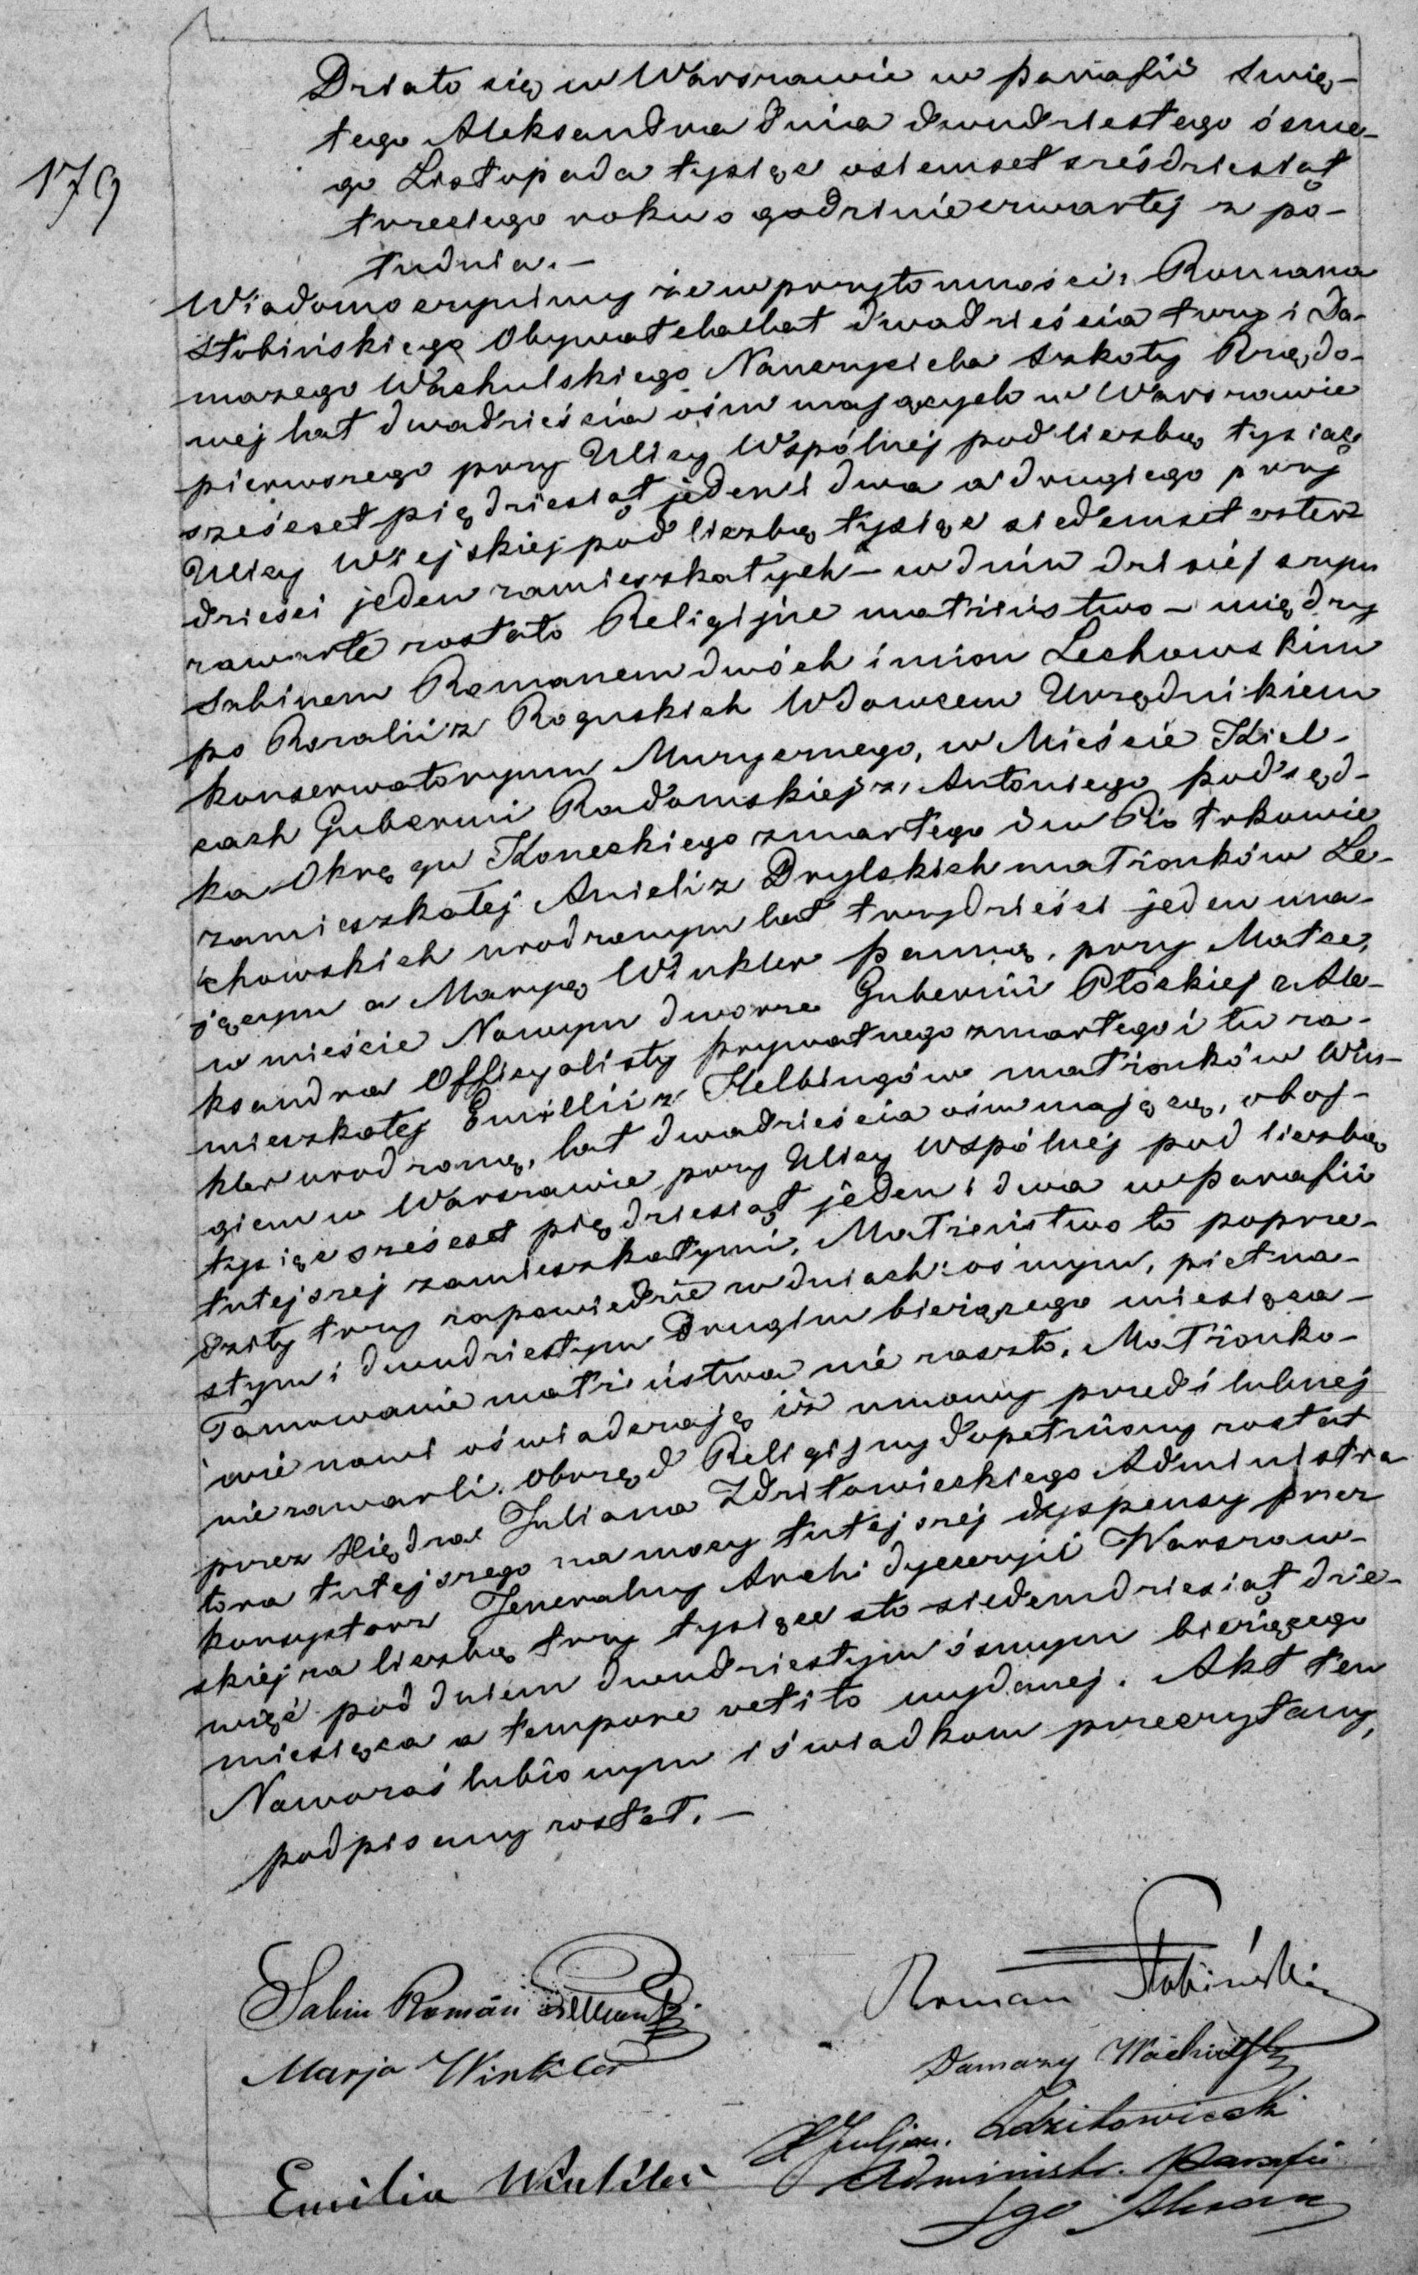 179
Działo się w Warszawie w parafii Świę-
tego Aleksandra dnia dwudziestego ósme-
go Listopada tysiąc osiemset sześdziesiąt
trzeciego roku o godzinie czwartej z po-
łudnia. —
Wiadomo czynimy że w przytomności, Romana
Słobińskiego Obywatela lat dwadzieścia trzy i Da-
mazego Wachulskiego Nauczyciela Szkoły Rządo-
wej lat dwadzieścia ośm mających w Warszawie
pierwszego przy Ulicy Wspólnej pod liczbą tysiąc
sześćset piędziesiąt jeden i dwa a drugiego przy
Ulicy Wiejskiej pod liczbą tysiąc siedemset czter-
dzieści jeden zamieszkałych — w dniu dzisiejszym
zawarte zostało Religijne małżeństwo — między
Sabinem Romanem dwóch imion Lechowskim
po Rozalii z Roguskich Wdowcem Urzędnikiem
konserwatoryum Muzycznego, w Mieście Kiel-
cach Gubernii Radomskiej z, Antoniego podsęd-
ka Okręgu Koneckiego zmarłego i w Piotrkowie
zamieszkałej Anieli z Drylskich małżonków Le-
chowskich urodzonym lat trzydzieści jeden ma-
jącym a Maryą Winkler panną, przy Matce,
w mieście Nowym dworze Gubernii Płóckiej z Ale-
ksandra Officyalisty prywatnego zmarłego i tu za-
mieszkałej Emillii z Helbingów małżonków Win-
kler urodzoną, lat dwadzieścia ośm mającą, oboj-
giem w Warszawie przy Ulicy Wspólnej pod liczbą
tysiąc sześćset piędziesiąt jeden i dwa w Parafii
tutejszej zamieszkałymi, Małżeństwo to poprze-
dziły trzy zapowiedzie w dniach: ósmym, pietna-
stym i dwudziestym drugim bieżącego miesiąca —
Tamowanie małżeństwa nie zaszło. Małżonko-
wie nowi oświadczają iż umowy przedślubnej
nie zawarli. Obrzęd Religijny dopełniony został
przez Księdza Juliana Zdzitowieckiego Administra-
tora tutejszego na mocy tutejszej dyspensy przez
Konsystorz Jeneralny Archidyecezyii Warszaw-
skiej za liczbą trzy tysiące sto siedemdziesiąt dzie-
więć pod dniem dwudziestym ósmym bieżącego
miesiąca a tempore vetito wydanej. Akt ten
Nowozaślubionym i świadkom przeczytany,
podpisany został. —
Sabin Roman Lechowski
Roman Słobiński
Marja Winkler
Damazy Wachulski
X Juljan. Zdzitowiecki
Emilia Winkler
Administr. Parafii
Sgo Alexan